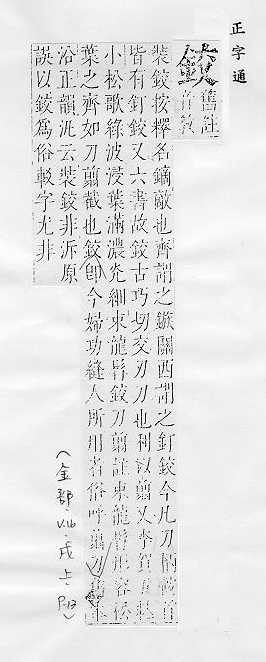 正字通
鉸
舊註音敎
裝鉸按釋名鏑敵也齊謂之鏃關西謂之釘鉸今凡刀柄裝首
皆有釘鉸又六書故鉸古巧切交刃刀也利以翦又李賀
小松歌綠波浸葉滿濃光細束龍髯鉸刀翦註束龍髯形容松
葉之齊如刀翦截也鉸卽今婦功縫人所用者俗呼翦刀
沿正韻汎云裝鉸非泝原
誤以鉸爲俗較字尤非
(金部.V.16.戌上.P.12)